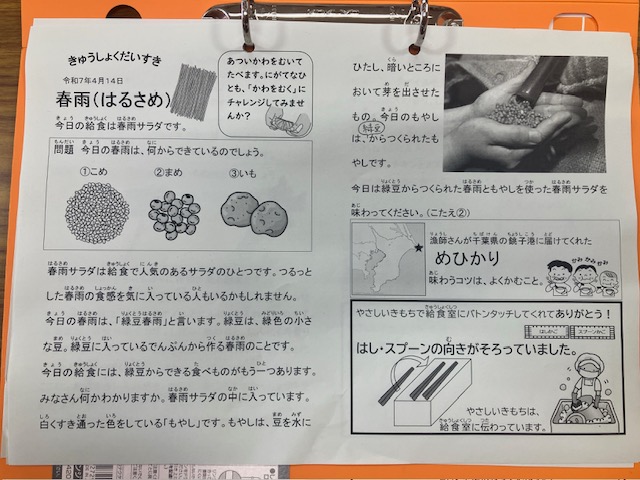 きゅうしょくだいすき
令和7年4月14日
春雨(はるさめ)
今日の給食は春雨サラダです。
あついかわをむいて
たべます。にがてなひ
とも、「かわをむく」に
チャレンジしてみませ
んか？
問題 今日の春雨は、何からできているのでしょう。
①こめ ②まめ ③いも
春雨サラダは給食で人気のあるサラダのひとつです。つるっと
した春雨の食感を気に入っている人もいるかもしれません。
今日の春雨は、「緑豆春雨」と言います。緑豆は、緑色の小さ
な豆。緑豆に入っているでんぷんから作る春雨のことです。
今日の給食には、緑豆からできる食べものがもう一つあります。
みなさん何かわかりますか。春雨サラダの中に入っています。
白くすき通った色をしている「もやし」です。もやしは、豆を水に
ひたし、暗いところに
おいて芽を出させた
もの。今日のもやし
は、緑豆からつくられたも
やしです。
今日は緑豆からつくられた春雨ともやしを使った春雨サラダを
味わってください。(こたえ②)
漁師さんが千葉県の銚子港に届けてくれた
めひかり
味わうコツは、よくかむこと。
カみ カみ カみ
やさしいきもちで給食室にバトンタッチしてくれてありがとう！
はしかご スプーンかご
はし・スプーンの向きがそろっていました。
やさしいきもちは、
給食室に伝わっています。